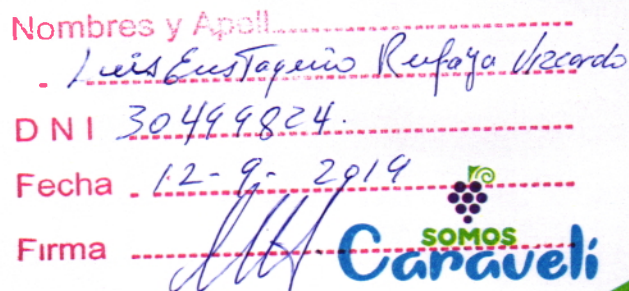 Nombres y Apell
Luis Eustaquio Rufaja Vizcardo
DNI 30499824.
Fecha 12-9-2019
Firma
SOMOS
Caravelí